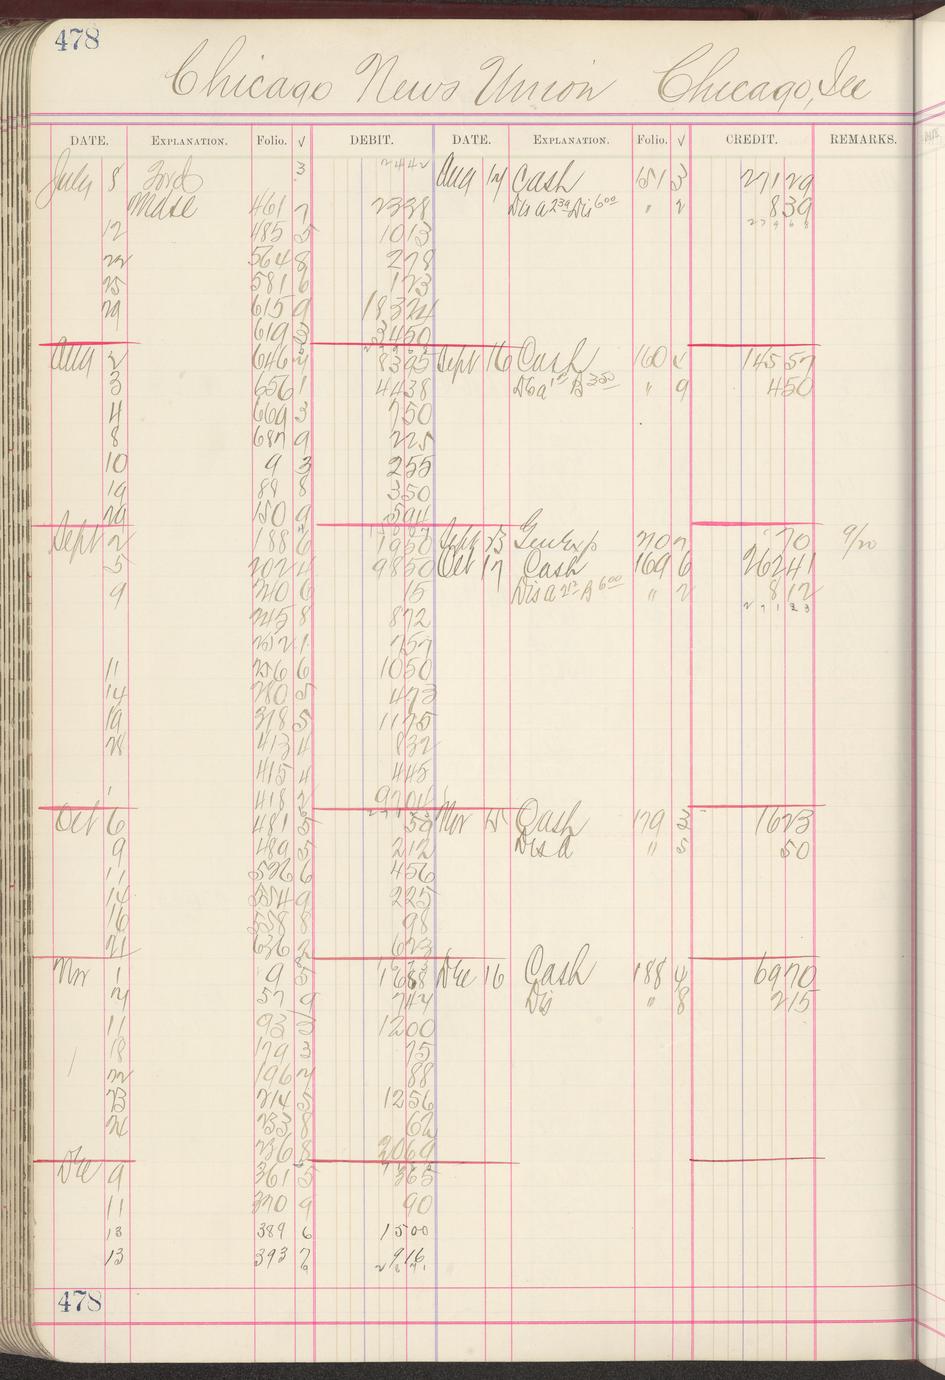 478
Chicago News Union Chicago, Ill
DATE. EXPLANATION. Folio. √ DEBIT. DATE. EXPLANATION. Folio. √ CREDIT. REMARKS.
July 8 3 2442 Aug 14 Cash 151 3 271 29
Mdse 461 7 23 38 " 2 8 39
12 485 5 10 13 27968
22 564 8 2 78
25 581 6 1 73
29 615 9 183 24
619 3 34 50
Aug 2 646 4 83 95 Sept 16 Cash 160 145 57
3 656 1 44 38 " 9 4 50
4 669 3 7 50
8 687 9 2 25
10 9 3 2 55
19 89 8 3 50
29 150 9 5 94
Sept 2 188 6 19 50 Sept 23 Gen Exp 207 70 9/20
5 202 4 98 50 Oct 17 Cash 169 6 262 41
9 240 6 15 " 2 8 12
245 8 8 72 27123
252 1 7 57
11 256 6 10 50
14 280 5 4 73
19 378 5 11 75
28 413 4 8 32
415 4 4 45
418 2
Oct 6 481 5 50 Nov 15 Cash 179 3 16 23
9 489 5 2 12 Disc " 5 50
11 526 6 4 56
14 554 9 2 25
16 558 8 98
21 636 2 6 23
Nov 1 9 5 16 88 Dec 16 Cash 188 4 69 70
4 57 9 7 44 Dis " 8 2 15
11 93 12 00
18 179 3 75
22 196 4 88
23 214 5 12 56
24 233 8 62
236 8 20 69
Dec 9 361 5 3 65
11 370 9 90
13 389 6 15 00
13 393 7 9 16
478